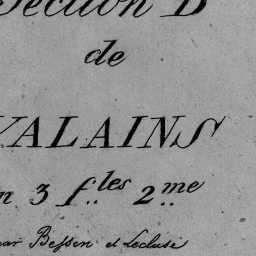 Section B
de
VALAINS
en 3 f.les 2.me
par Bessen et Lecluse